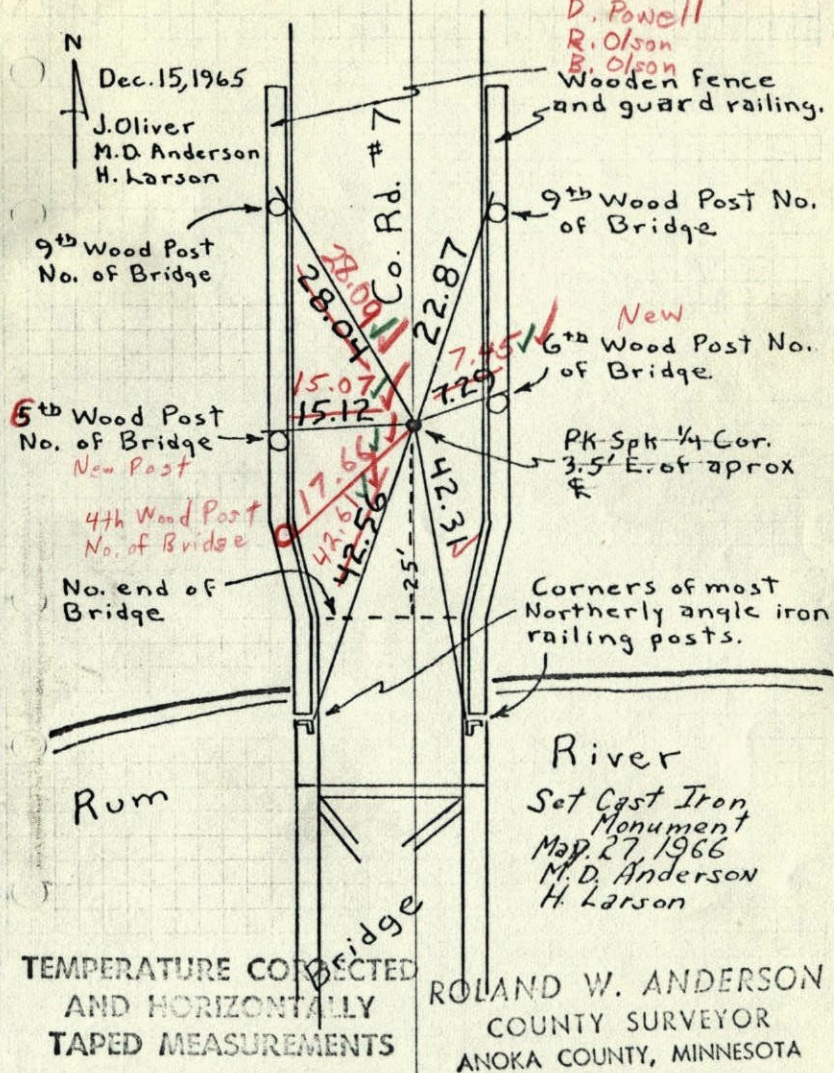 D. Powell
R. Olson
B. Olson
N
Dec. 15, 1965
J. Oliver
M.D. Anderson
H. Larson
Wooden fence
and guard railing.
Co. Rd. #7
9th Wood Post
No. of Bridge
9th Wood Post No.
of Bridge
28.09
28.04
22.87
New
7.45
7.29
6th Wood Post No.
of Bridge.
15.07
15.12
6
5th Wood Post
No. of Bridge
New Post
PK Spk 1/4 Cor.
3.5' E. of aprox
℄
17.66
42.61
42.56
42.31
25'
4th Wood Post
No. of Bridge
No. end of
Bridge
Corners of most
Northerly angle iron
railing posts.
Rum
River
Set Cast Iron
Monument
27, 1966
M.D. Anderson
H. Larson
Bridge
TEMPERATURE CORRECTED
AND HORIZONTALLY
TAPED MEASUREMENTS
ROLAND W. ANDERSON
COUNTY SURVEYOR
ANOKA COUNTY, MINNESOTA